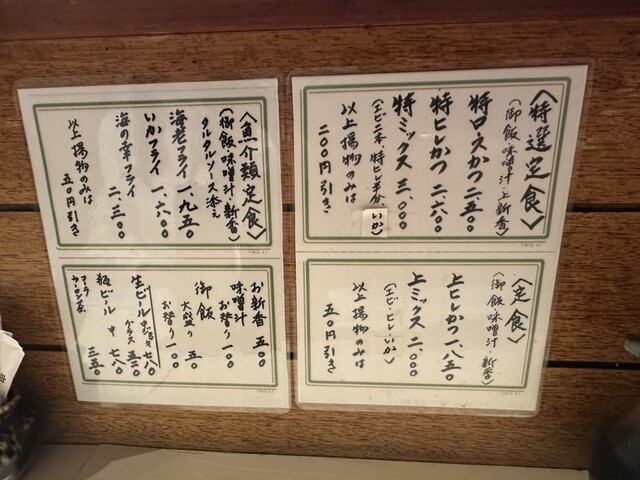 〈特選定食〉
(御飯・味噌汁・上新香)
特ロースかつ 二、五〇〇
特ヒレかつ 二、六〇〇
特ミックス 三、〇〇〇
(エビ二本、特ヒレ半分、いか)
以上揚物のみは
二〇〇円引き
〈定食〉
(御飯・味噌汁・新香)
上ヒレかつ 一、八五〇
上ミックス 二、〇〇〇
(エビ・ヒレ・いか)
以上揚物のみは
五〇円引き
〈魚介類定食〉
(御飯・味噌汁・新香)
タルタルソース添え
海老フライ 一、九五〇
いかフライ 一、六〇〇
海の幸フライ 二、三〇〇
以上揚物のみは
五〇円引き
お新香 五〇〇
味噌汁
お替り 一〇〇
御飯
大盛り 五〇
お替り 一〇〇
生ビール 中ジョッキ 七八〇
グラス 五二〇
瓶ビール 中 七八〇
コーラ
ウーロン茶 三五〇